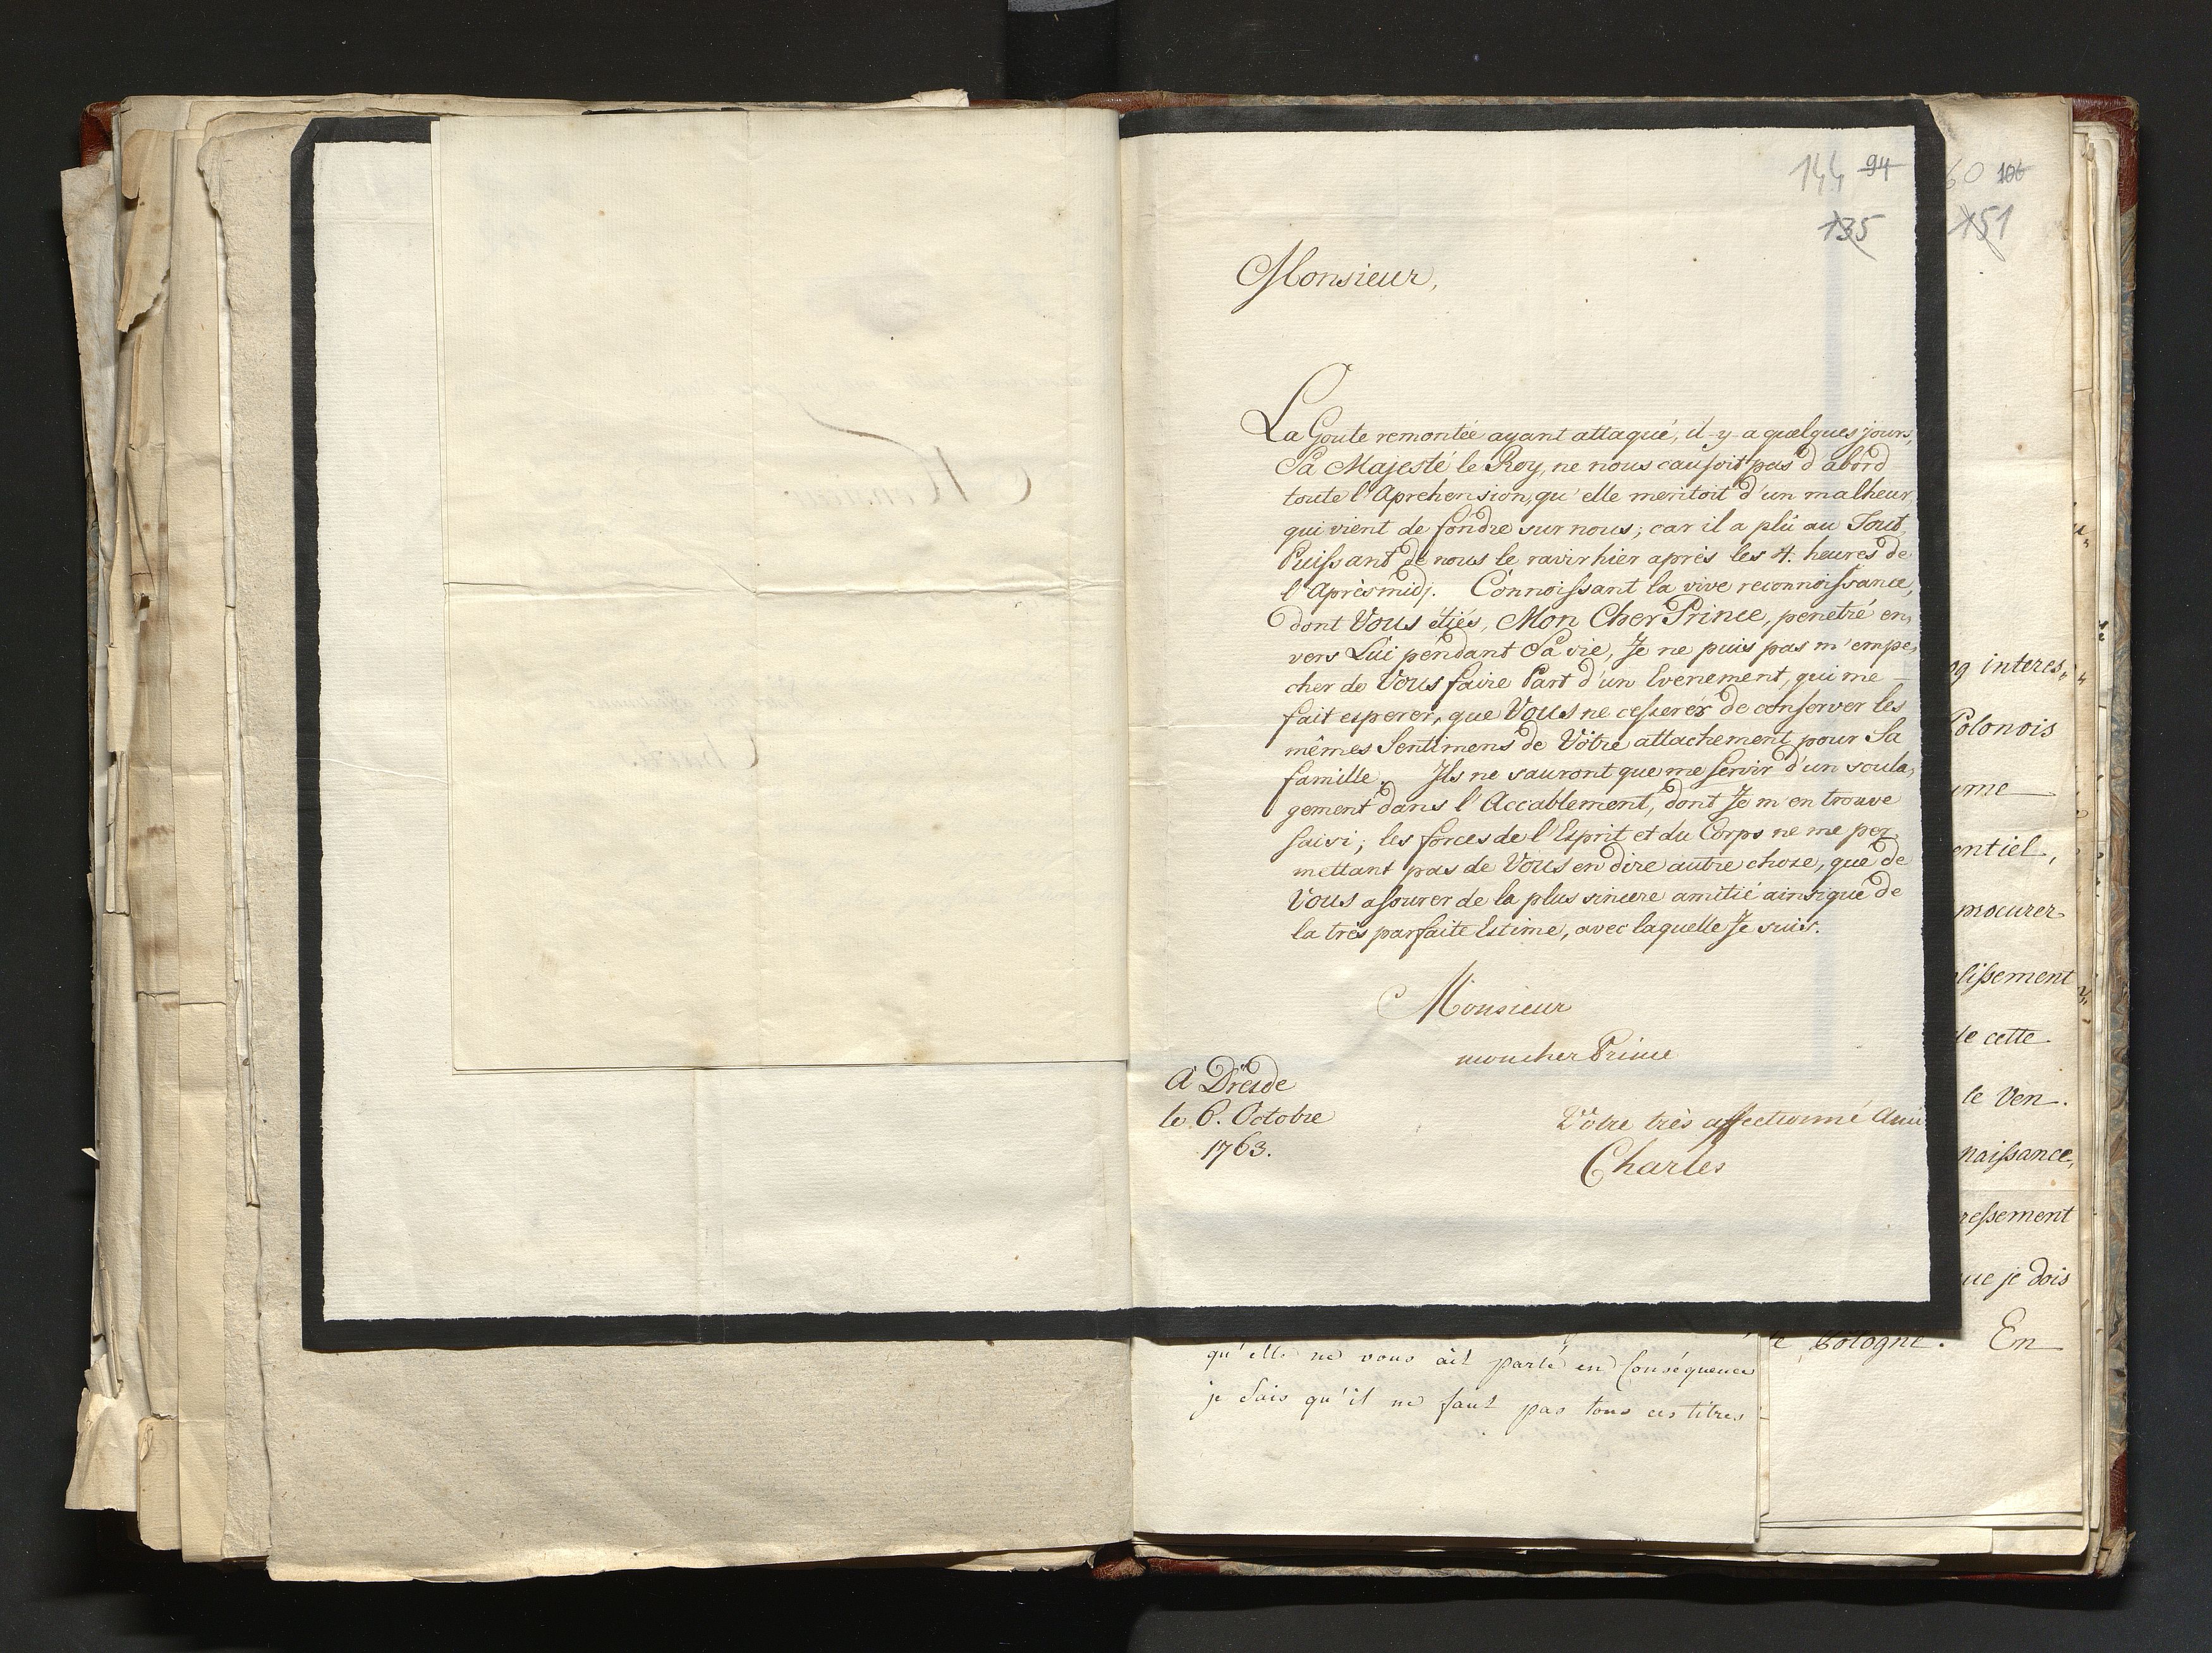 144 94
135
60 106
151
Monsieur,
La Goute remontée ayant attaqué, il-y-a quelques jours,
Sa Majesté le Roy, ne nous causoit pas d'abord
toute l'Aprehension, qu'elle meritoit d'un malheur,
qui vient de fondre sur nous; car il a plû au Tout
Puissant de nous le ravir hier après les 4. heures de
l'Aprèsmidj. Connoissant la vive reconnoissance,
dont Vous étiés, Mon Cher Prince, penetré en,
vers Lui pendant Sa vie, Je ne puis pas m'empe,
cher de Vous faire Part d'un Evenement, qui me
fait esperer, que Vous ne cesserés de conserver les
mêmes Sentimens de Vôtre attachement pour Sa
famille. Ils ne sauront que me servir d'un soula,
gement dans l'Accablement, dont Je m'en trouve
saisi; les forces de l'Esprit et du Corps ne me per,
mettant pas de Vous en dire autre chose, que de
Vous assurer de la plus sincere amitié ainsi que de
la très parfaite Estime, avec laquelle Je suis.
Monsieur
mon cher Prince
A Dresde
le 6. Octobre
1763.
Vôtre très affectionné Ami
Charles
qu'elle ne vous ait parlé en Conséquence
je sais qu'il ne faut pas tous ces titres
og interes,
Polonois
me
entiel,
procurer
lissement
de cette
le Ven.
naissance,
ressement
ue je dois
e Pologne. En